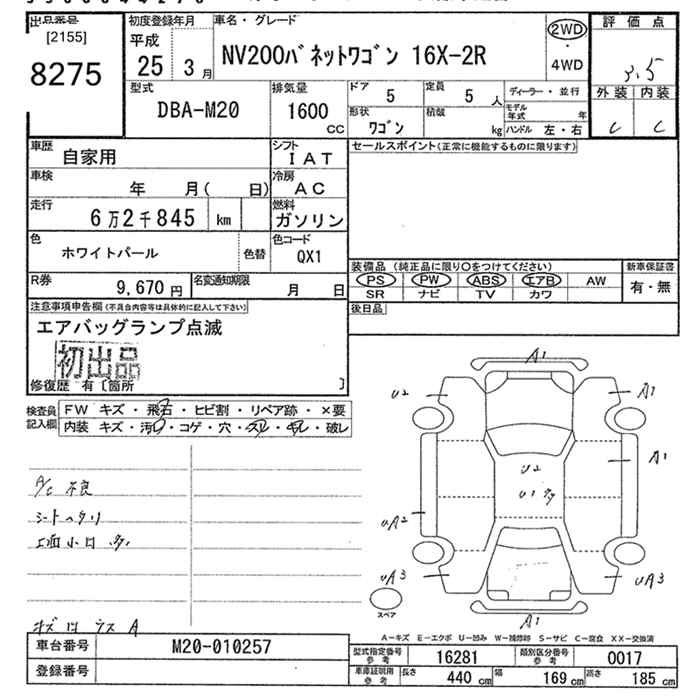 出品番号
[2155]
8275
初度登録年月
平成
25 3月
車名・グレード
NV200バネットワゴン 16X-2R
2WD
・
4WD
評価点
3.5
外装 内装
C C
型式
DBA-M20
排気量
1600
CC
ドア
5
定員
5 人
形状
ワゴン
積載
kg
ディーラー・並行
モデル年式 年
ハンドル 左・右
車歴
自家用
シフト
IAT
車検
年 月( 日)
冷房
AC
走行
6万2千845 km
燃料
ガソリン
色
ホワイトパール
色替
色コード
QX1
R券
9,670 円
名変通知期限
月 日
セールスポイント(正常に機能するものに限ります)
装備品 (純正品に限り○をつけてください)
新車保証書
PS PW ABS エアB AW
有・無
SR ナビ TV カワ
後日品
注意事項申告欄(不具合内容等は具体的に記入して下さい)
エアバッグランプ点滅
初出品
修復歴 有〔箇所 〕
検査員記入欄
FW キズ・飛石・ヒビ割・リペア跡・×要
内装 キズ・汚レ・コゲ・穴・スレ・キレ・破レ
A/C 不良
シートヘタリ
上面小凹多
A1
U2
A1
A1
U2
U1多
UA2
UA3
UA3
スペア
A1
A-キズ E-エクボ U-凹み W-補修跡 S-サビ C-腐食 XX-交換済
車台番号
M20-010257
登録番号
型式指定番号
参考
16281
類別区分番号
参考
0017
車庫証明用
参考
長さ
440 cm
幅
169 cm
高さ
185 cm